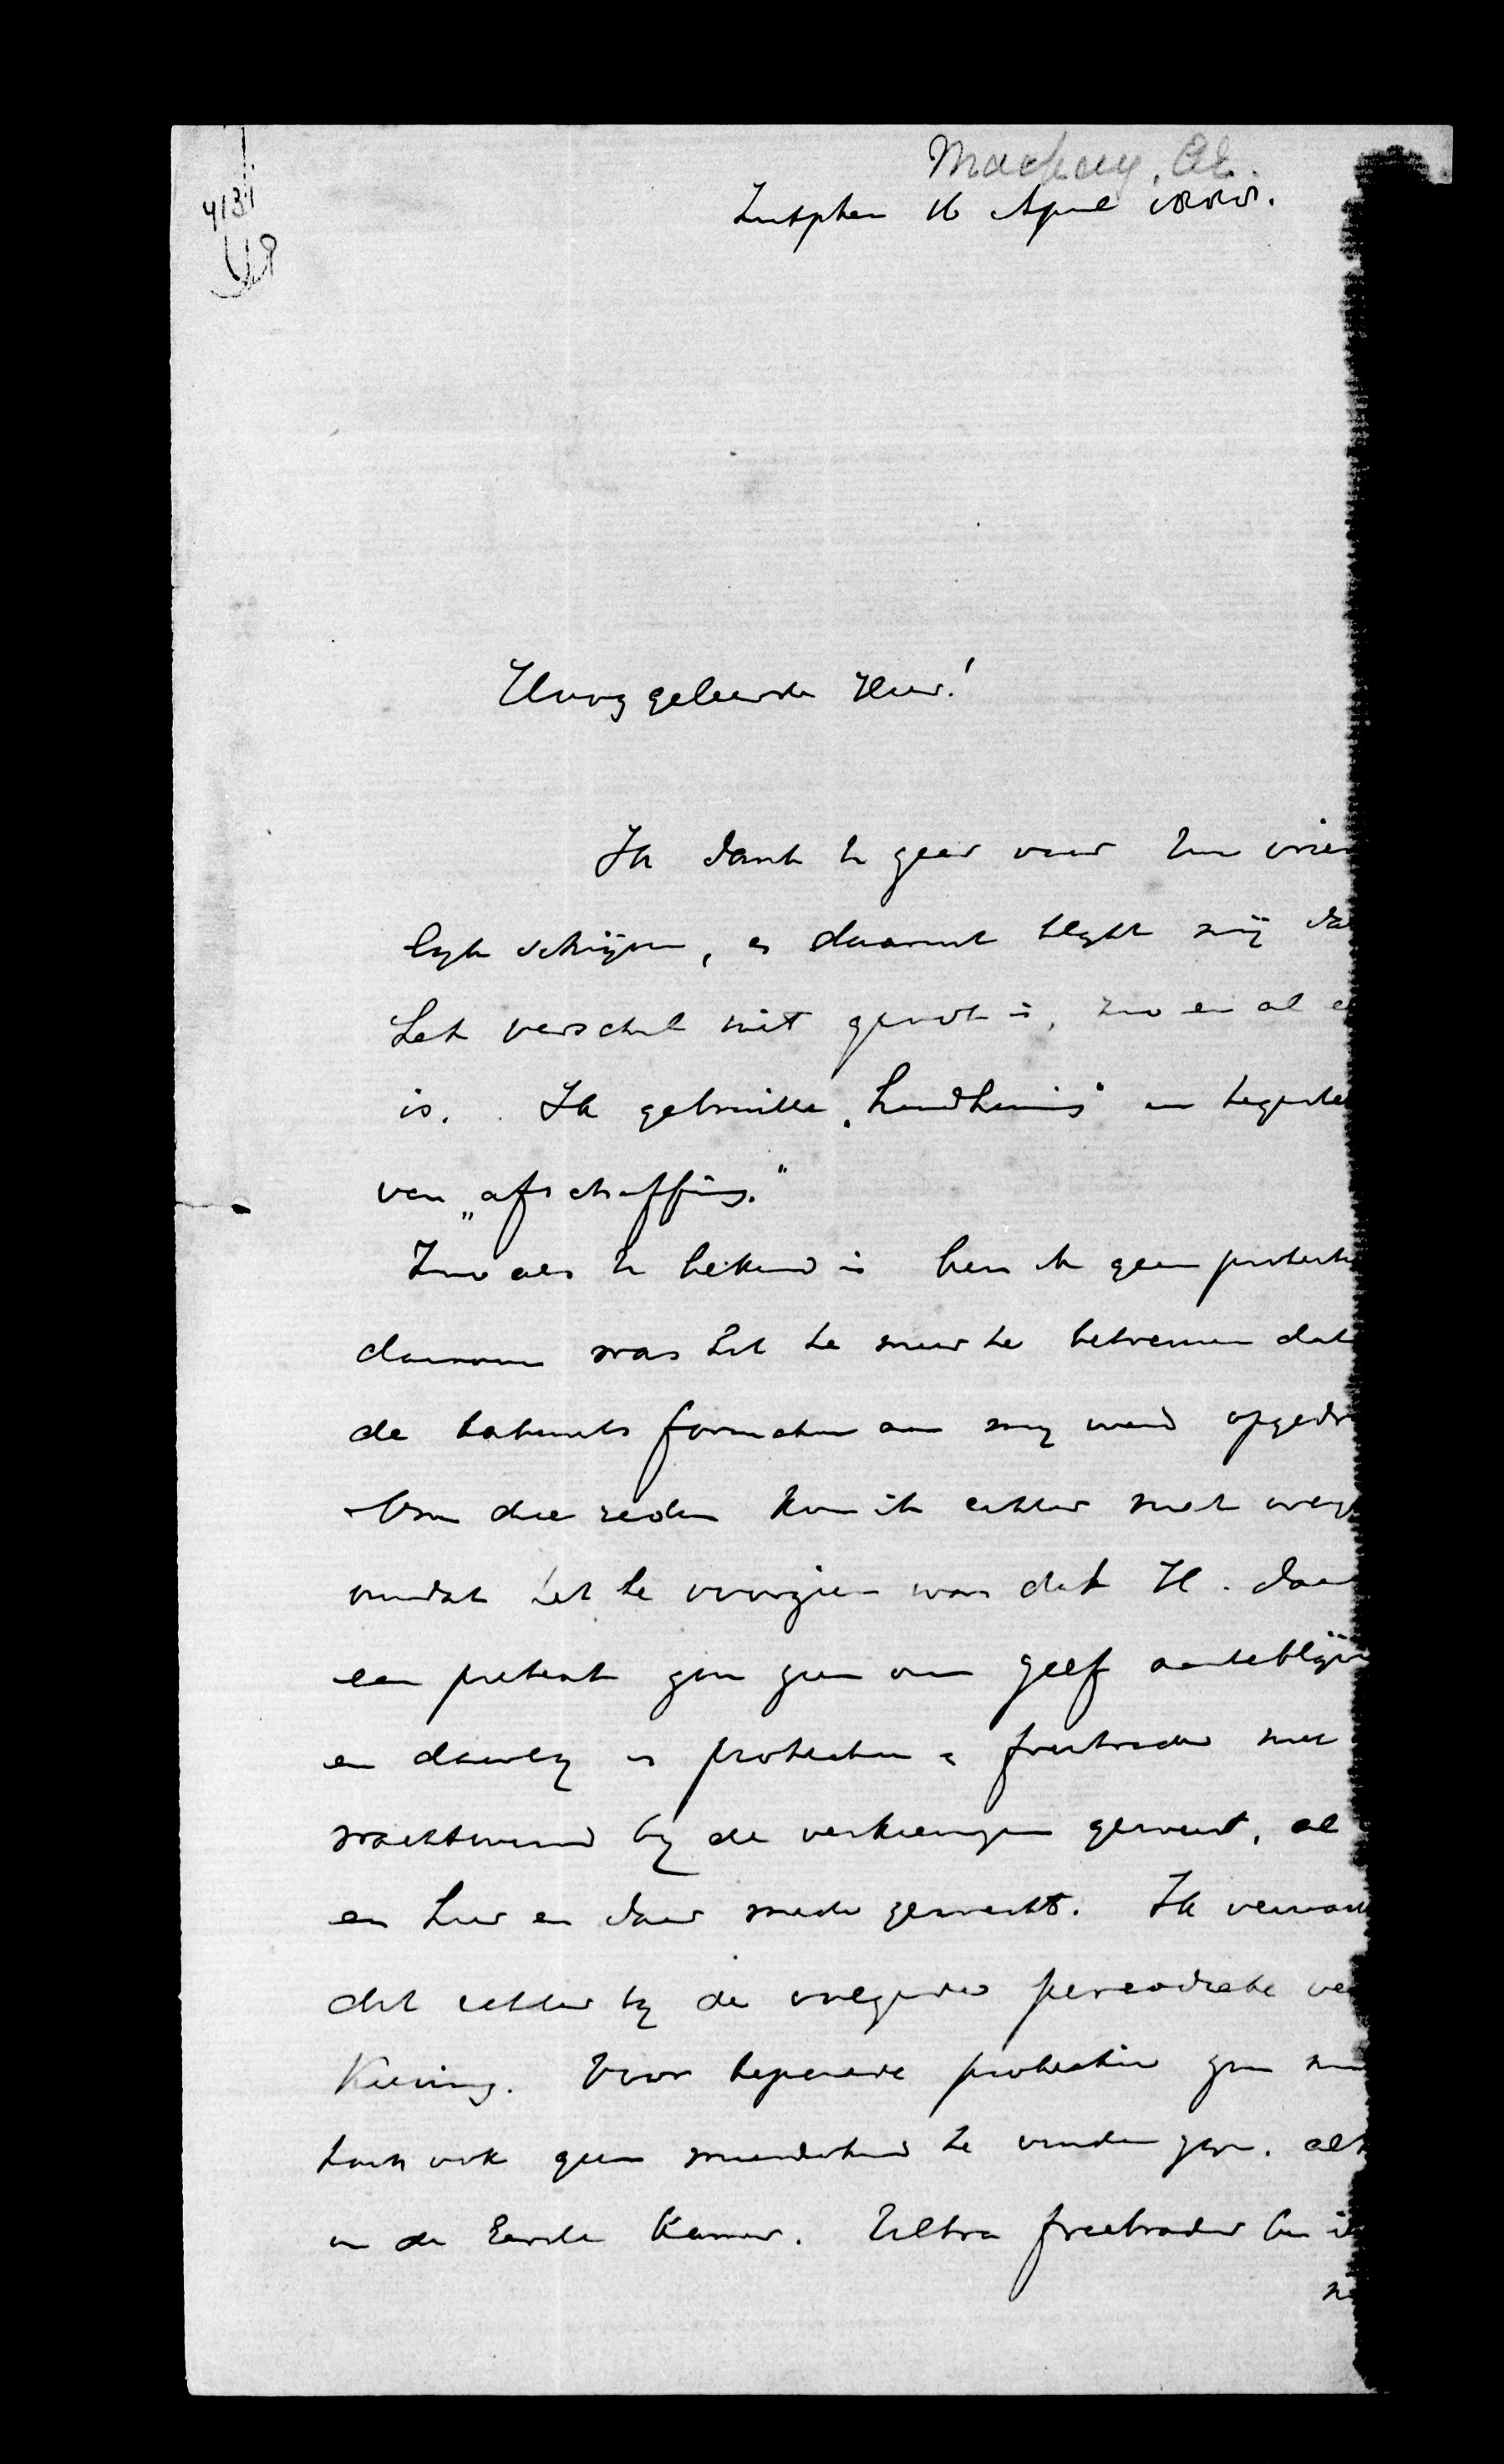 4131
Mackay, AE.
Zutphen 16 April 1888.
Hooggeleerde Heer!
Ik dank U zeer voor Uw vrien
lyk schrijven, en daaruit blykt mij da
het verschil niet groot is, zoo er al e
is. Ik gebruikte „handhaving" en tegenste
van „afschaffing."
Zoo als U bekend is ben ik geen protecti
daarom was het te meer te betreuren dat
de kabinets formatie aan my werd opgedr
Om die reden kon ik echter niet weig
omdat het te voorzien was dat H. daar
een pretext zou zien om zelf aanteblijv
en daarby is protectie en freetrade niet
wachtwoord by de verkiezingen geweest, al
en hier en daar mede gewerkt. Ik verwach
dit echter by de volgende periodieke ver
kiezing. Voor beperkte protectie zou m
toch ook geen meerderheid te vinden zyn. alth
in de Eerste Kamer. Ultra freetrader ben ik
ni